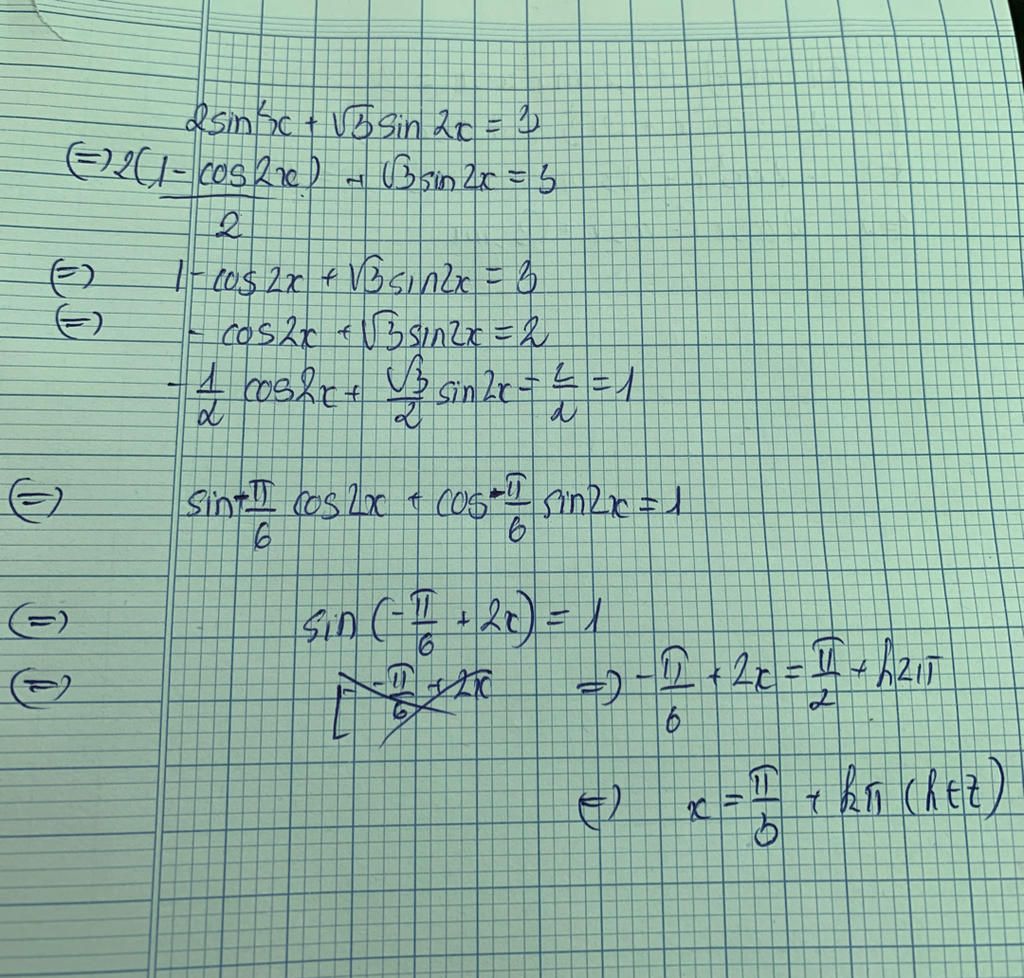 2sin²x + √3 sin 2x = 3
(=) 2(1 - cos2x)/2 + √3 sin 2x = 3
(=) 1 - cos 2x + √3 sin2x = 3
(=) - cos2x + √3 sin2x = 2
- 1/2 cos2x + √3/2 sin 2x = 2/2 = 1
(=) sin -π/6 cos 2x + cos -π/6 sin2x = 1
(=) sin (-π/6 + 2x) = 1
(=) [ -π/6 + 2x =) -π/6 + 2x = π/2 + k2π
(=) x = π/3 + kπ (k∈Z)